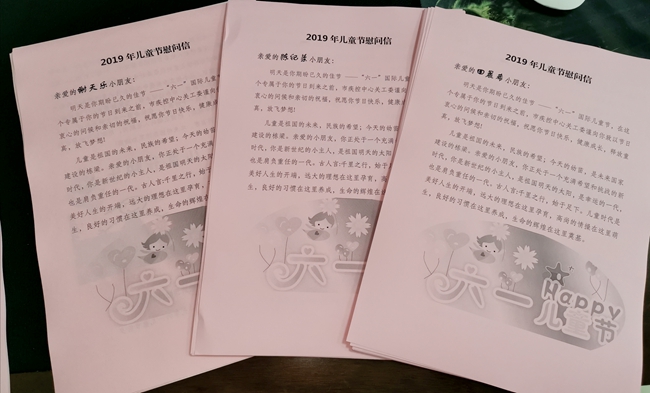 2019 年儿童节慰问信
亲爱的谢天乐小朋友：
明天是你期盼已久的佳节 ——“六一”国际儿童
个专属于你的节日到来之前，市疾控中心关工委谨向
衷心的问候和亲切的祝福，祝愿你节日快乐，健康成
真，放飞梦想！
儿童是祖国的未来，民族的希望；今天的幼苗，
建设的栋梁。亲爱的小朋友，你正处于一个充满
时代，你是新世纪的小主人，是祖国明天的太阳
也是肩负重任的一代。古人言:千里之行，始于
美好人生的开端，远大的理想在这里孕育，高
生，良好的习惯在这里养成，生命的辉煌
六一
2019 年儿童节慰问信
亲爱的陈记
小朋友：
明天是你期盼已久的佳节 ——“六一”国际儿童节
个专属于你的节日到来之前，市疾控中心关工委谨向
衷心的问候和亲切的祝福，祝愿你节日快乐，健康成
真，放飞梦想！
儿童是祖国的未来，民族的希望；今天的幼苗，
建设的栋梁。亲爱的小朋友，你正处于一个充满
时代，你是新世纪的小主人，是祖国明天的太阳
也是肩负重任的一代。古人言:千里之行，始于
美好人生的开端，远大的理想在这里孕育，高
生，良好的习惯在这里养成，生命的辉煌在
六一
2019 年儿童节慰问信
亲爱的田晨希小朋友：
明天是你期盼已久的佳节 ——“六一”国际儿童节，在这
个专属于你的节日到来之前，市疾控中心关工委谨向你致以节日
衷心的问候和亲切的祝福，祝愿你节日快乐，健康成长，释放童
真，放飞梦想！
儿童是祖国的未来，民族的希望；今天的幼苗，是未来国家
建设的栋梁。亲爱的小朋友，你正处于一个充满希望和挑战的新
时代，你是新世纪的小主人，是祖国明天的太阳，是幸运的一代，
也是肩负重任的一代。古人言:千里之行，始于足下。儿童时代是
美好人生的开端，远大的理想在这里孕育，高尚的情操在这里萌
生，良好的习惯在这里养成，生命的辉煌在这里奠基。
六一
Happy
儿童节